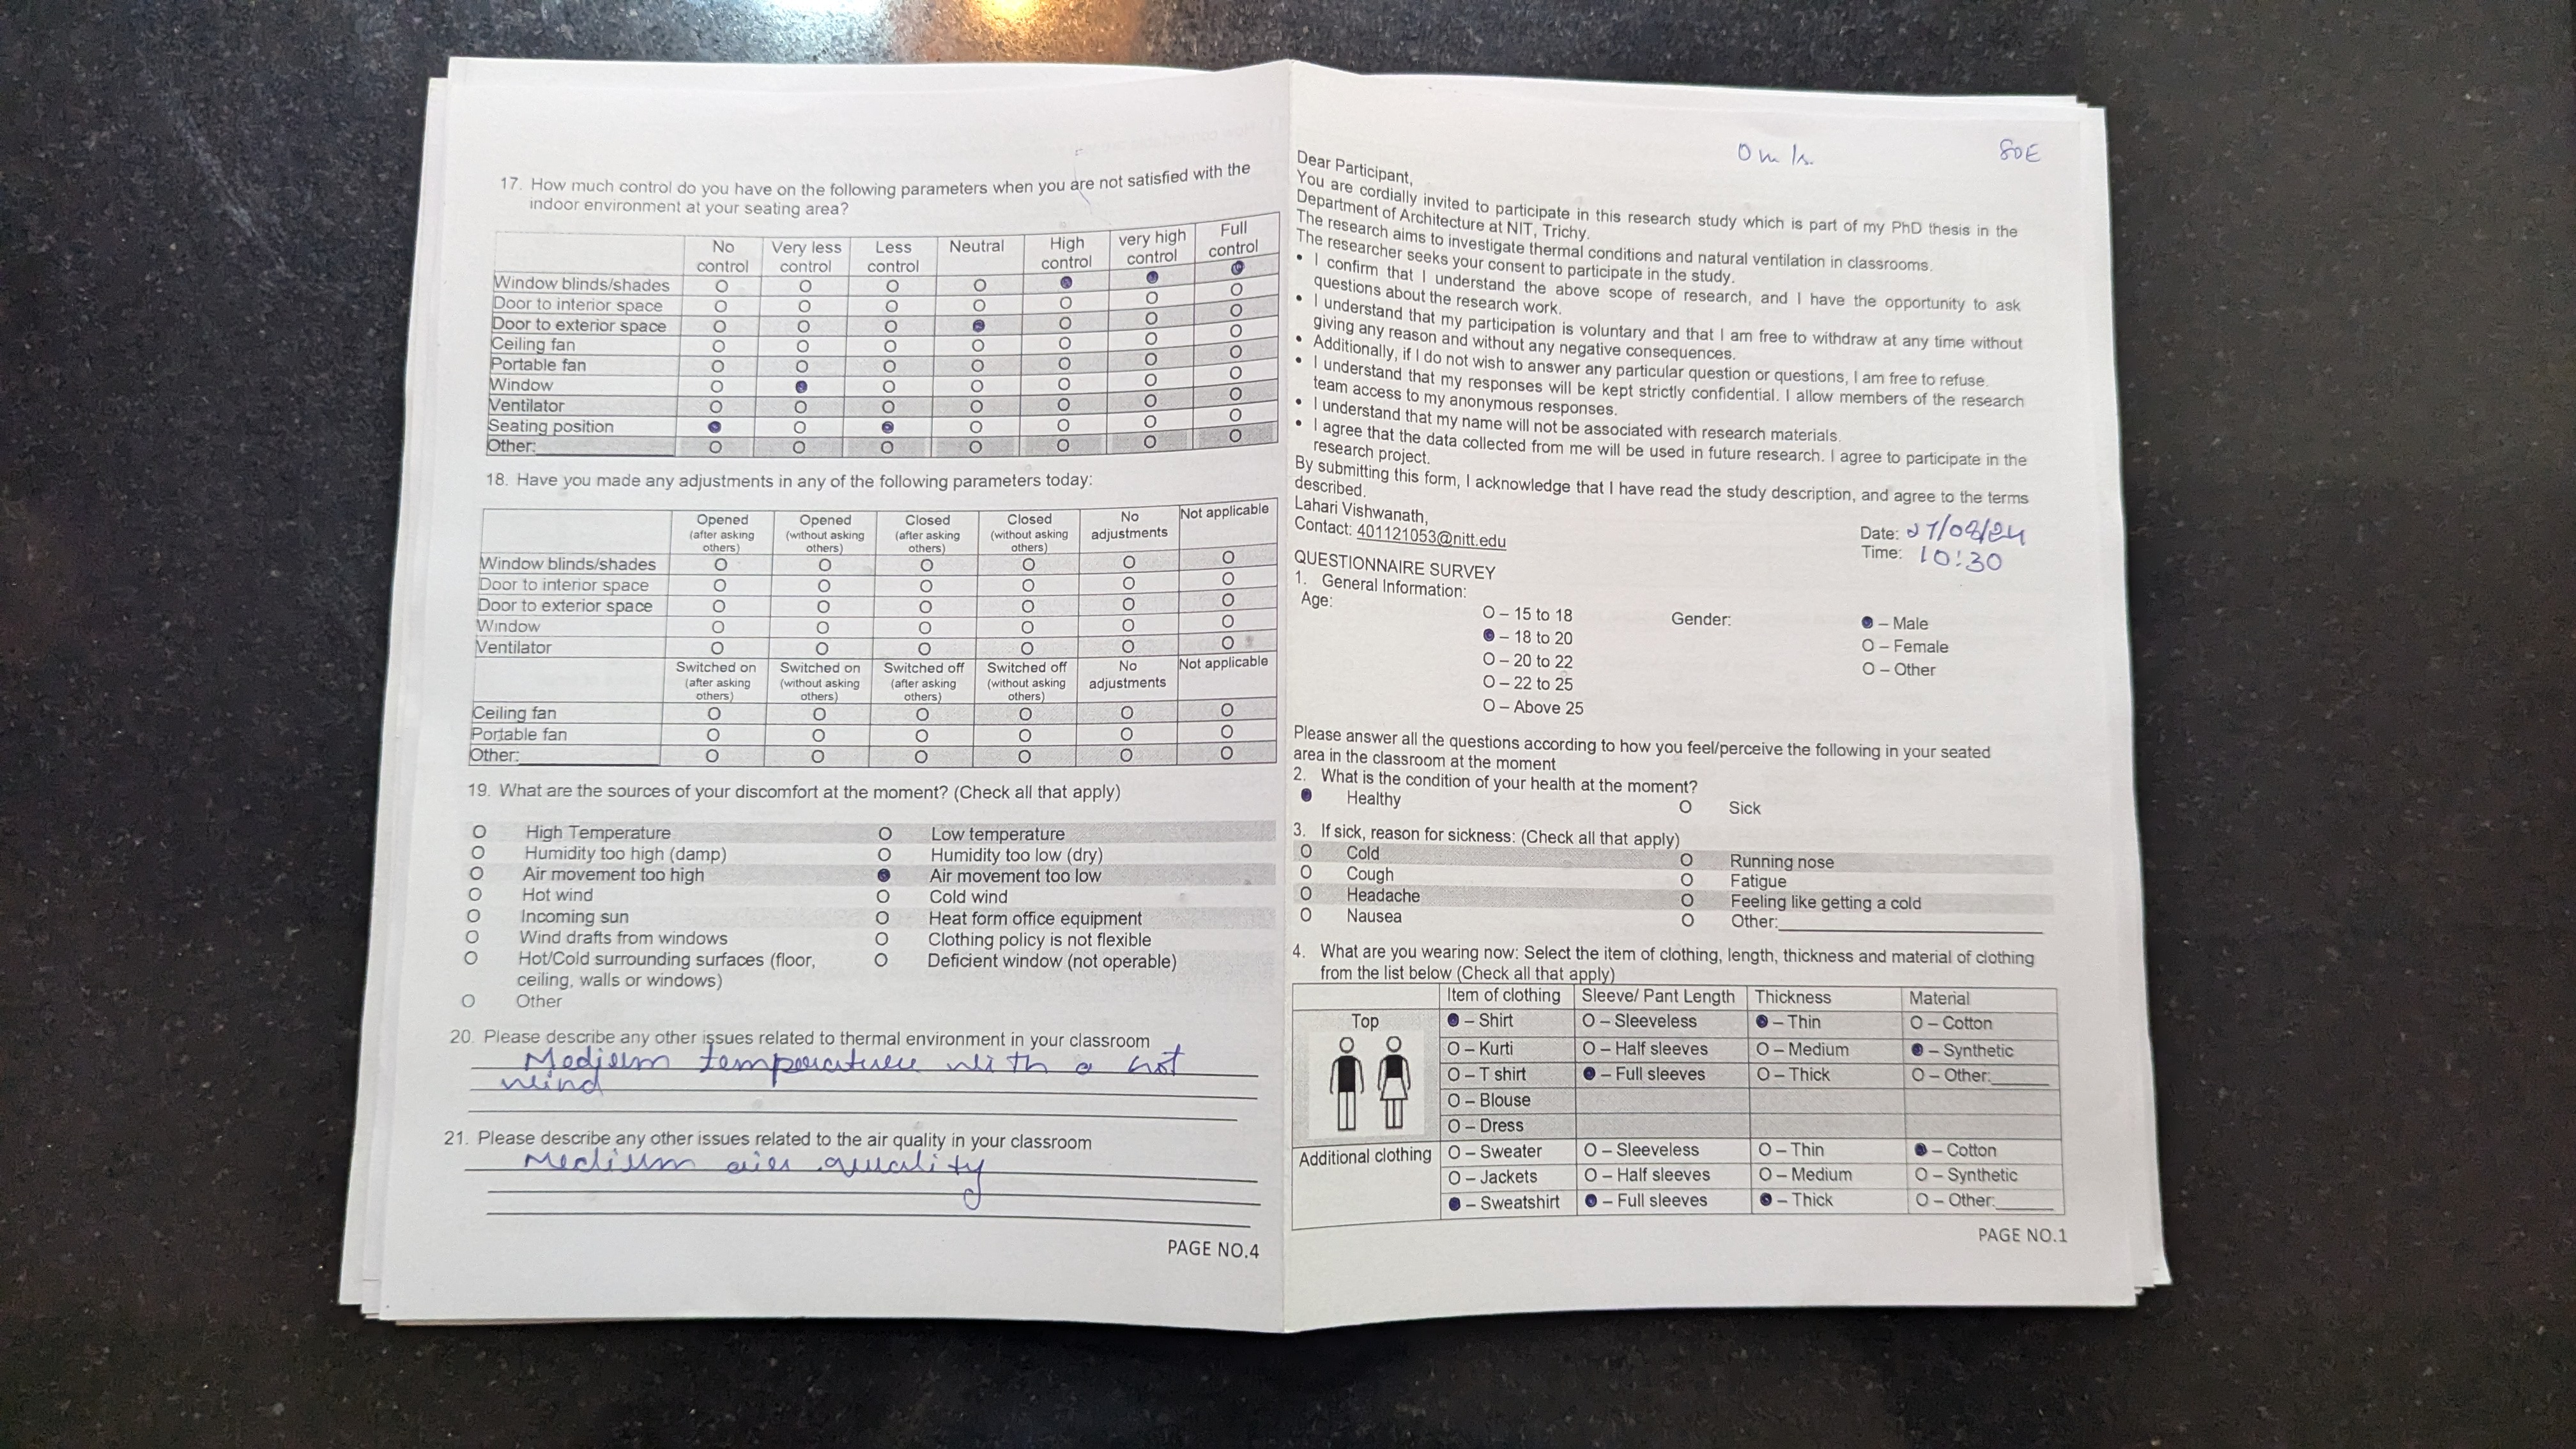 17. How much control do you have on the following parameters when you are not satisfied with the
indoor environment at your seating area?
No control Very less control Less control Neutral High control very high control Full control
Window blinds/shades O O O O
Door to interior space O O O O O O O
Door to exterior space O O O O O O
Ceiling fan O O O O O O O
Portable fan O O O O O O O
Window O O O O O O
Ventilator O O O O O O O
Seating position O O O O O
Other: O O O O O O O
18. Have you made any adjustments in any of the following parameters today:
Opened (after asking others) Opened (without asking others) Closed (after asking others) Closed (without asking others) No adjustments Not applicable
Window blinds/shades O O O O O O
Door to interior space O O O O O O
Door to exterior space O O O O O O
Window O O O O O O
Ventilator O O O O O O
Switched on (after asking others) Switched on (without asking others) Switched off (after asking others) Switched off (without asking others) No adjustments Not applicable
Ceiling fan O O O O O O
Portable fan O O O O O O
Other: O O O O O O
19. What are the sources of your discomfort at the moment? (Check all that apply)
O High Temperature O Low temperature
O Humidity too high (damp) O Humidity too low (dry)
O Air movement too high Air movement too low
O Hot wind O Cold wind
O Incoming sun O Heat form office equipment
O Wind drafts from windows O Clothing policy is not flexible
O Hot/Cold surrounding surfaces (floor, O Deficient window (not operable)
ceiling, walls or windows)
O Other
20. Please describe any other issues related to thermal environment in your classroom
Medium temperature with a hot
wind
21. Please describe any other issues related to the air quality in your classroom
Medium air quality
PAGE NO.4
Dear Participant,
You are cordially invited to participate in this research study which is part of my PhD thesis in the
Department of Architecture at NIT, Trichy.
The research aims to investigate thermal conditions and natural ventilation in classrooms.
The researcher seeks your consent to participate in the study.
• I confirm that I understand the above scope of research, and I have the opportunity to ask
questions about the research work.
• I understand that my participation is voluntary and that I am free to withdraw at any time without
giving any reason and without any negative consequences.
• Additionally, if I do not wish to answer any particular question or questions, I am free to refuse.
• I understand that my responses will be kept strictly confidential. I allow members of the research
team access to my anonymous responses.
• I understand that my name will not be associated with research materials.
• I agree that the data collected from me will be used in future research. I agree to participate in the
research project.
By submitting this form, I acknowledge that I have read the study description, and agree to the terms
described.
Lahari Vishwanath,
Contact: 401121053@nitt.edu
Date: 27/08/24
Time: 10:30
QUESTIONNAIRE SURVEY
1. General Information:
Age:
O – 15 to 18
– 18 to 20
O – 20 to 22
O – 22 to 25
O – Above 25
Gender:
– Male
O – Female
O – Other
Please answer all the questions according to how you feel/perceive the following in your seated
area in the classroom at the moment
2. What is the condition of your health at the moment?
Healthy O Sick
3. If sick, reason for sickness: (Check all that apply)
O Cold O Running nose
O Cough O Fatigue
O Headache O Feeling like getting a cold
O Nausea O Other:
4. What are you wearing now: Select the item of clothing, length, thickness and material of clothing
from the list below (Check all that apply)
Item of clothing Sleeve/ Pant Length Thickness Material
Top – Shirt O – Sleeveless – Thin O – Cotton
O – Kurti O – Half sleeves O – Medium – Synthetic
O – T shirt – Full sleeves O – Thick O – Other:
O – Blouse
O – Dress
Additional clothing O – Sweater O – Sleeveless O – Thin – Cotton
O – Jackets O – Half sleeves O – Medium O – Synthetic
– Sweatshirt – Full sleeves – Thick O – Other:
PAGE NO.1